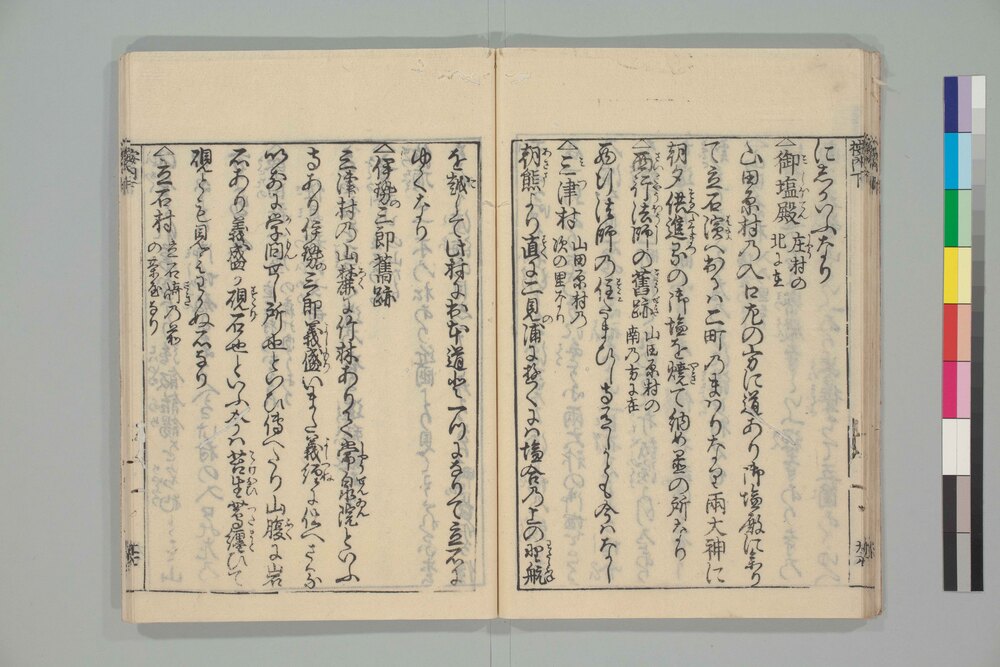 にしたがふなり
御塩殿 庄村の
北に在
山田原村の入口左の方に道あり御塩殿に参り
て立石濱へ出れハ二町のまはりなり両大神に
朝夕供進るの御塩を焼て納め置の所なり
西行法師の舊跡 山田原村の
南の方に在
西行法師の住たまひし寺なれとも今ハなし
三津村 山田原村の
次の里なり
朝熊より直に二見浦に趣くにハ塩合の上の野航
を越して此村に出る道と一つになりて立石に
ゆくなり
伊勢三郎舊跡
三津村の山麓に竹林ありて常泉院といふ
寺あり伊勢三郎義盛いまた義経に仕へさる
以前に学问せし所也といひ傳へたり山腹に岩
石あり義盛の硯石也といふなれハ苔生葛纏ひて
硯とも見えわかぬ石なり
立石村 立石崎の前
の茶屋なり